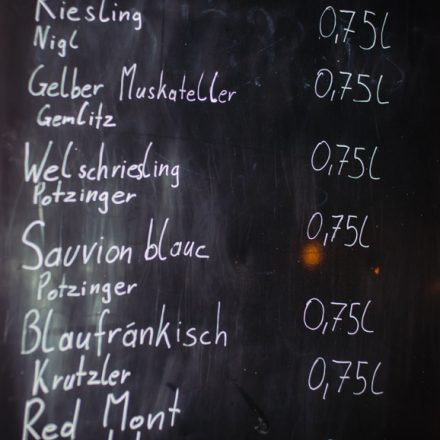 Riesling 0,75l
Nigl
Gelber Muskateller 0,75l
Gemlitz
Welschriesling 0,75l
Potzinger
Sauvion blauc 0,75l
Potzinger
Blaufränkisch 0,75l
Krutzler 0,75l
Red Mont